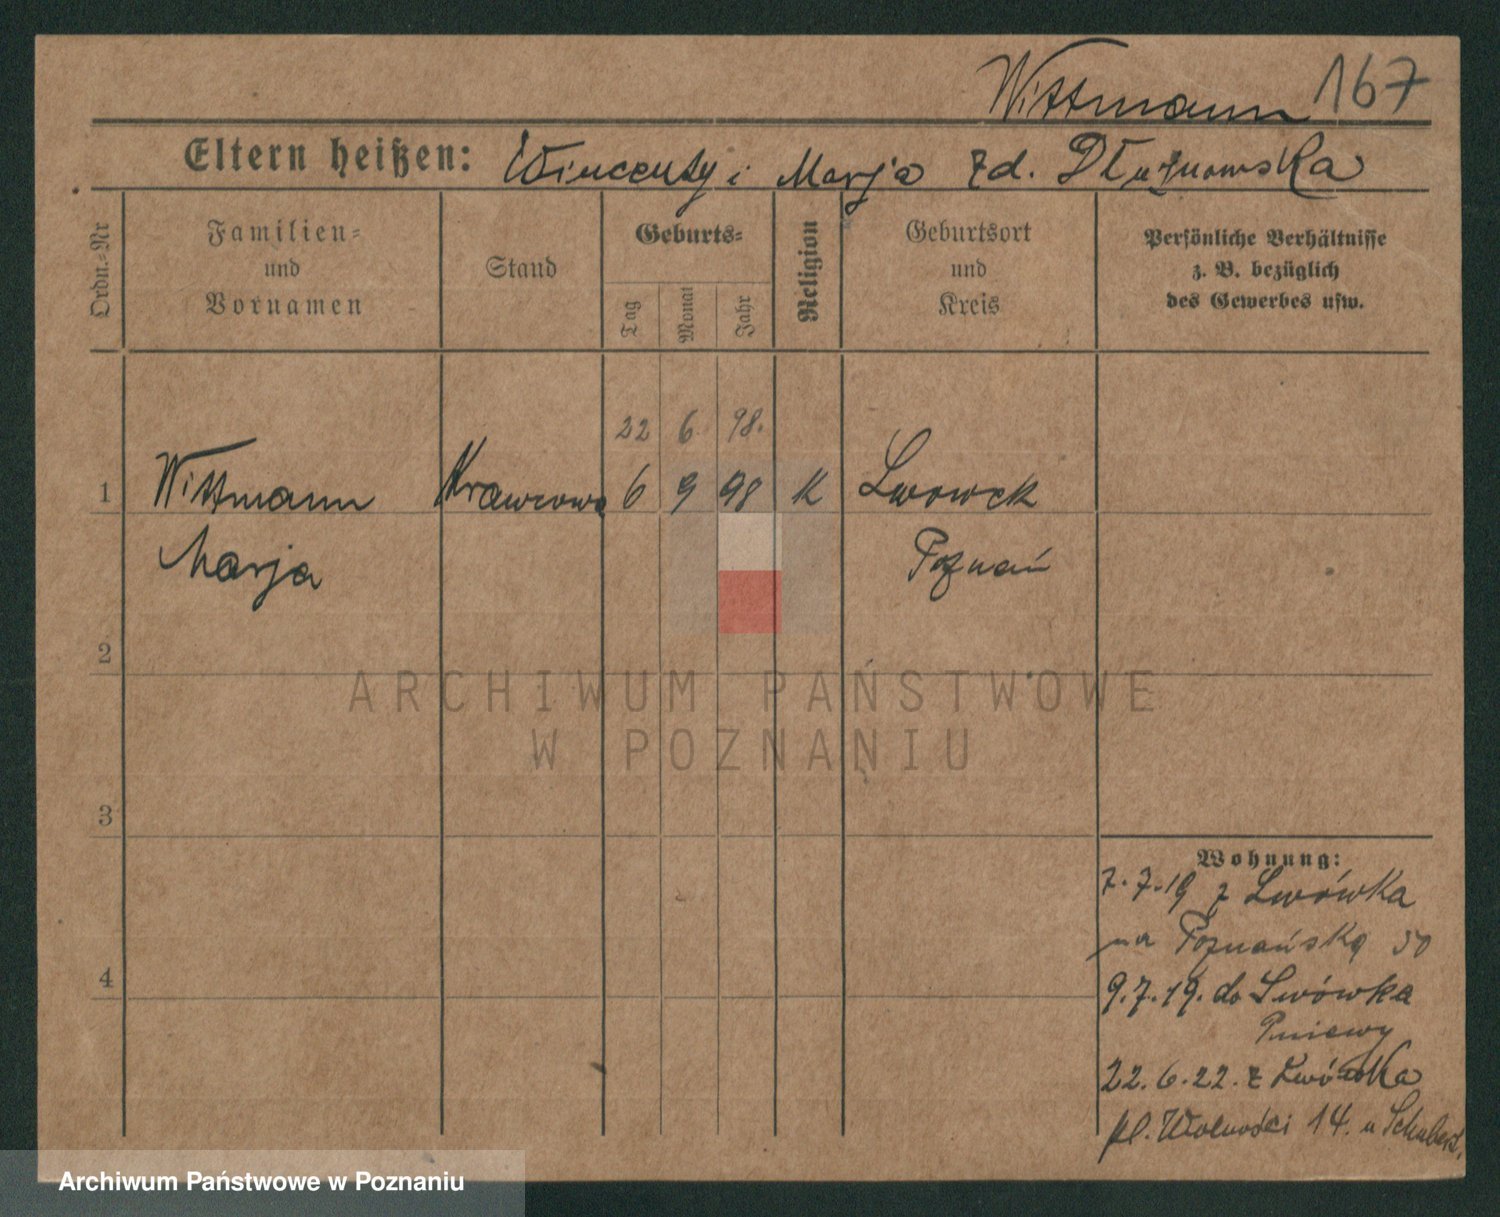 Wittmann 167
Eltern heißen: Wincenty i Marja zd. Dłużnowska
Ordn.-Nr
Familien-
und
Vornamen
Stand
Geburts-
Tag
Monat
Jahr
Religion
Geburtsort
und
Kreis
Persönliche Verhältnisse
z. B. bezüglich
des Gewerbes usw.
22 6 98.
1 Wittmann Krawcowa 6 9 98 K Lwowek
Marja Poznań
2
ARCHIWUM PAŃSTWOWE
W POZNANIU
3
Wohnung:
7.7.19 z Lwówka
na Poznańską 50
4
9.7.19. do Lwówka
Pniewy
22.6.22. z Lwówka
pl. Wolności 14. u Schubert.
Archiwum Państwowe w Poznaniu